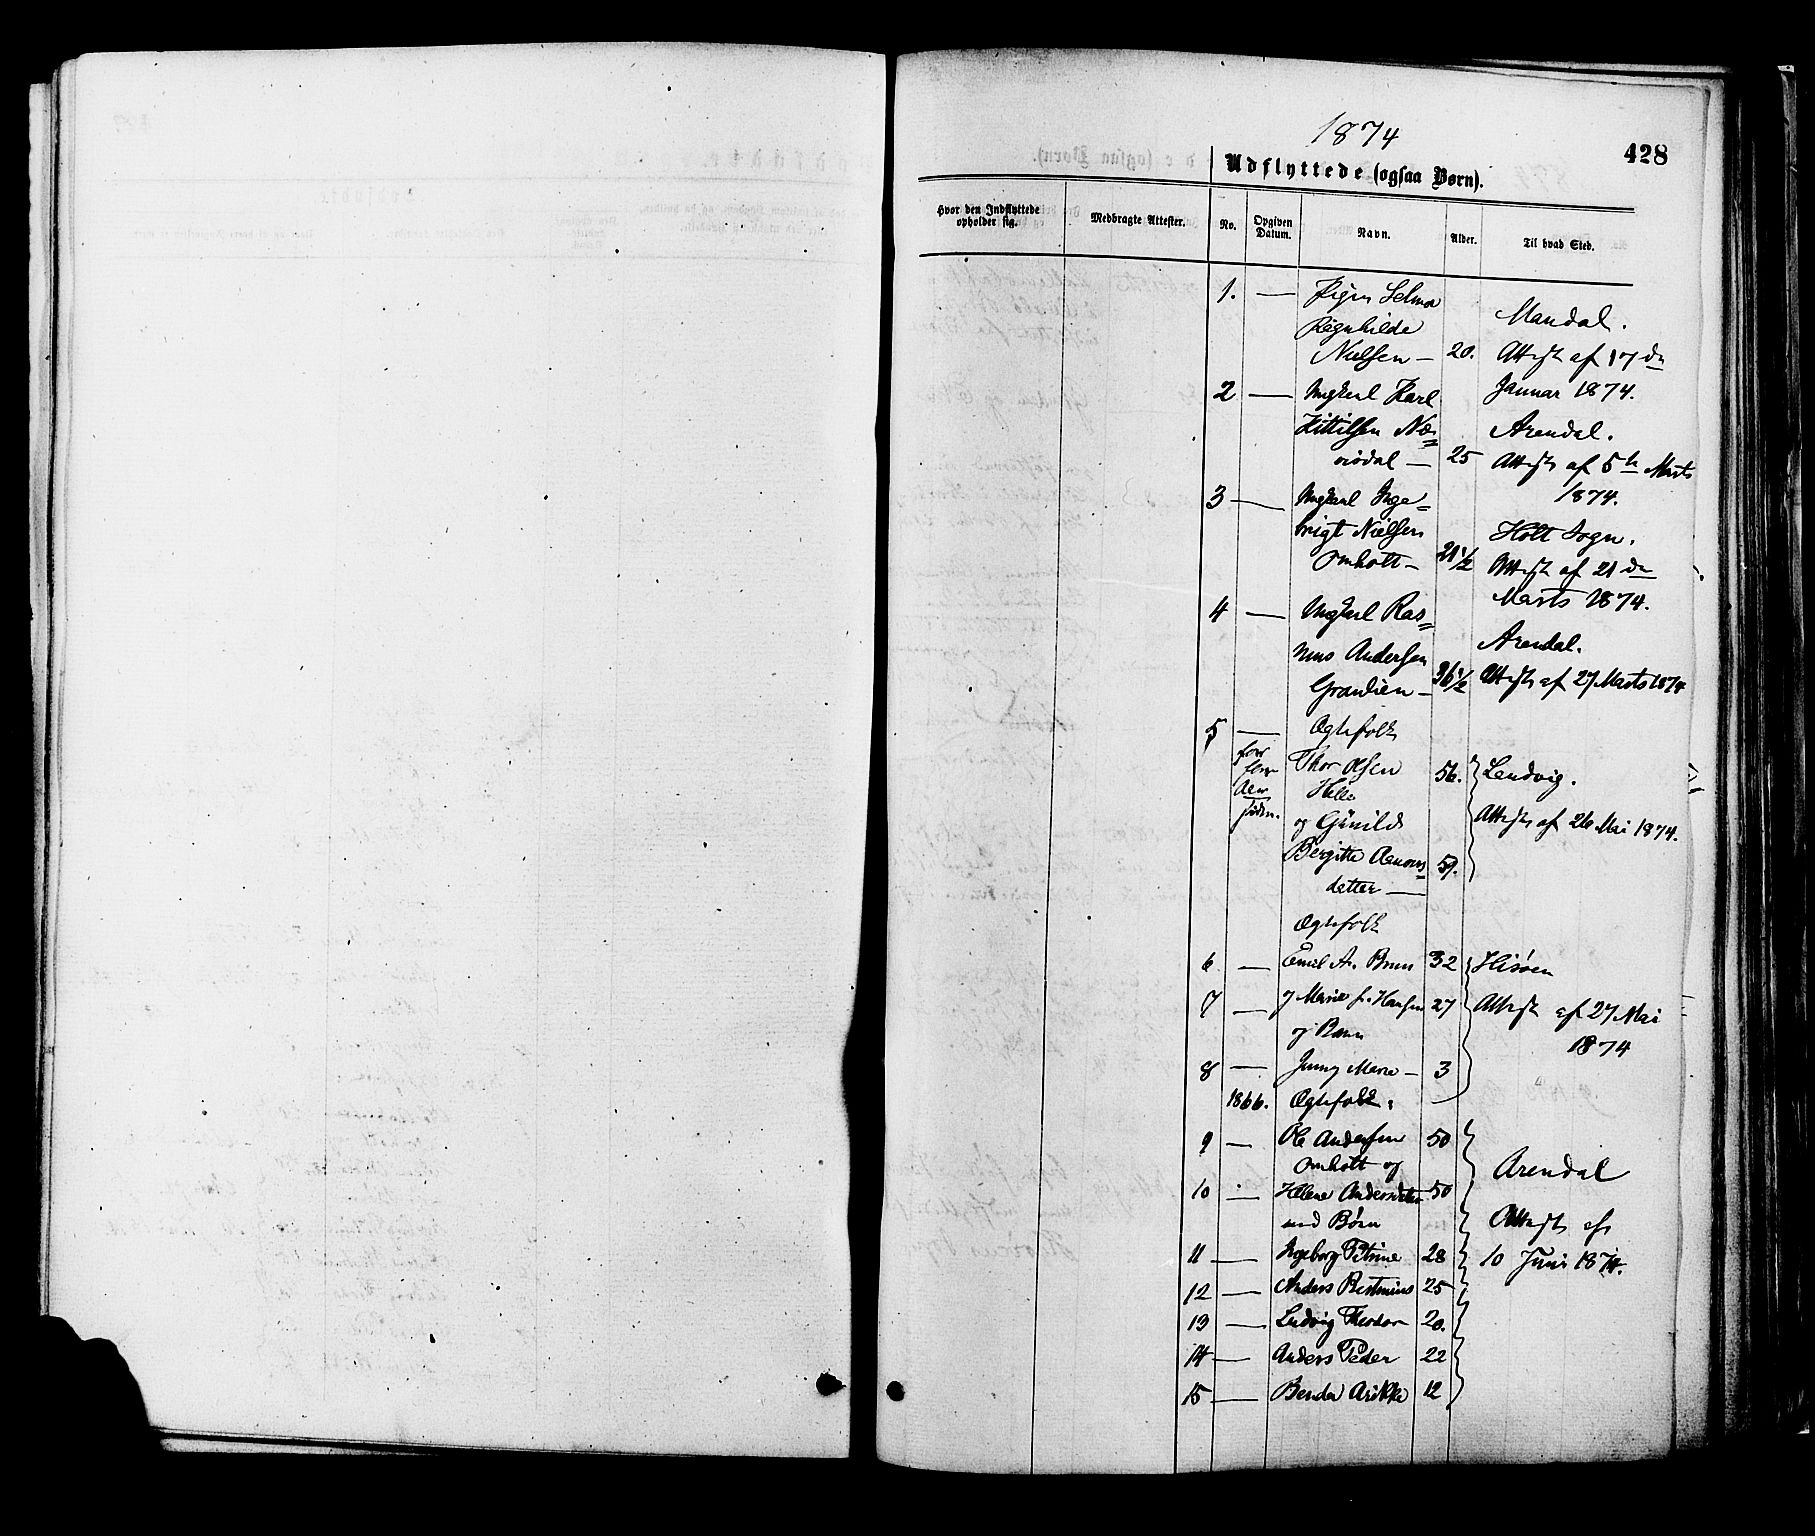 1874
428
Udflyttede (ogsaa Børn).
Hvor den Indflyttede opholder sig. Medbragte Attester. No. Opgiven Datum. Navn. Alder. Til hvad Sted.
1. — Pigen Selma
Ragnhilde Mandal.
Nielsen — 20. Attest af 17 de
2 — Ungkarl Karl Januar 1874.
Kittilsen Næs= Arendal.
— 25 Attest af 5te Marts
1874.
3 — Ungkarl Inge=
brigt Nielsen Holt Sogn.
Omholt — 21 1/2 Attest af 21 de
Marts 1874.
4 — Ungkarl Ras=
mus Andersen Arendal.
— 36 1/2 Attest af 27 Marts 1874
5 — Ægtefolk
Thor Olsen 56. Lendvig.
Helle
og Gunild Attest af 26 Mai 1874.
Bergitte
datter — 59.
Ægtefolk
6 — Emil A. Bruun 32 Hisøen
7 — og Marie f. Hansen 27 Attest af 27 Mai
og Barn 1874
8 — Jenny Marie — 3
1866. Ægtefolk.
9 — Ole Andersen 50
Omholt og Arendal
10 — Helene Andersdatter 50
med Børn Attest af
11 — Ingeborg Petrine 28 10 Juni 1874.
12 — Anders 25
13 — Ludvig Theodor 20.
14 — Anders Peder 22
15 — 12